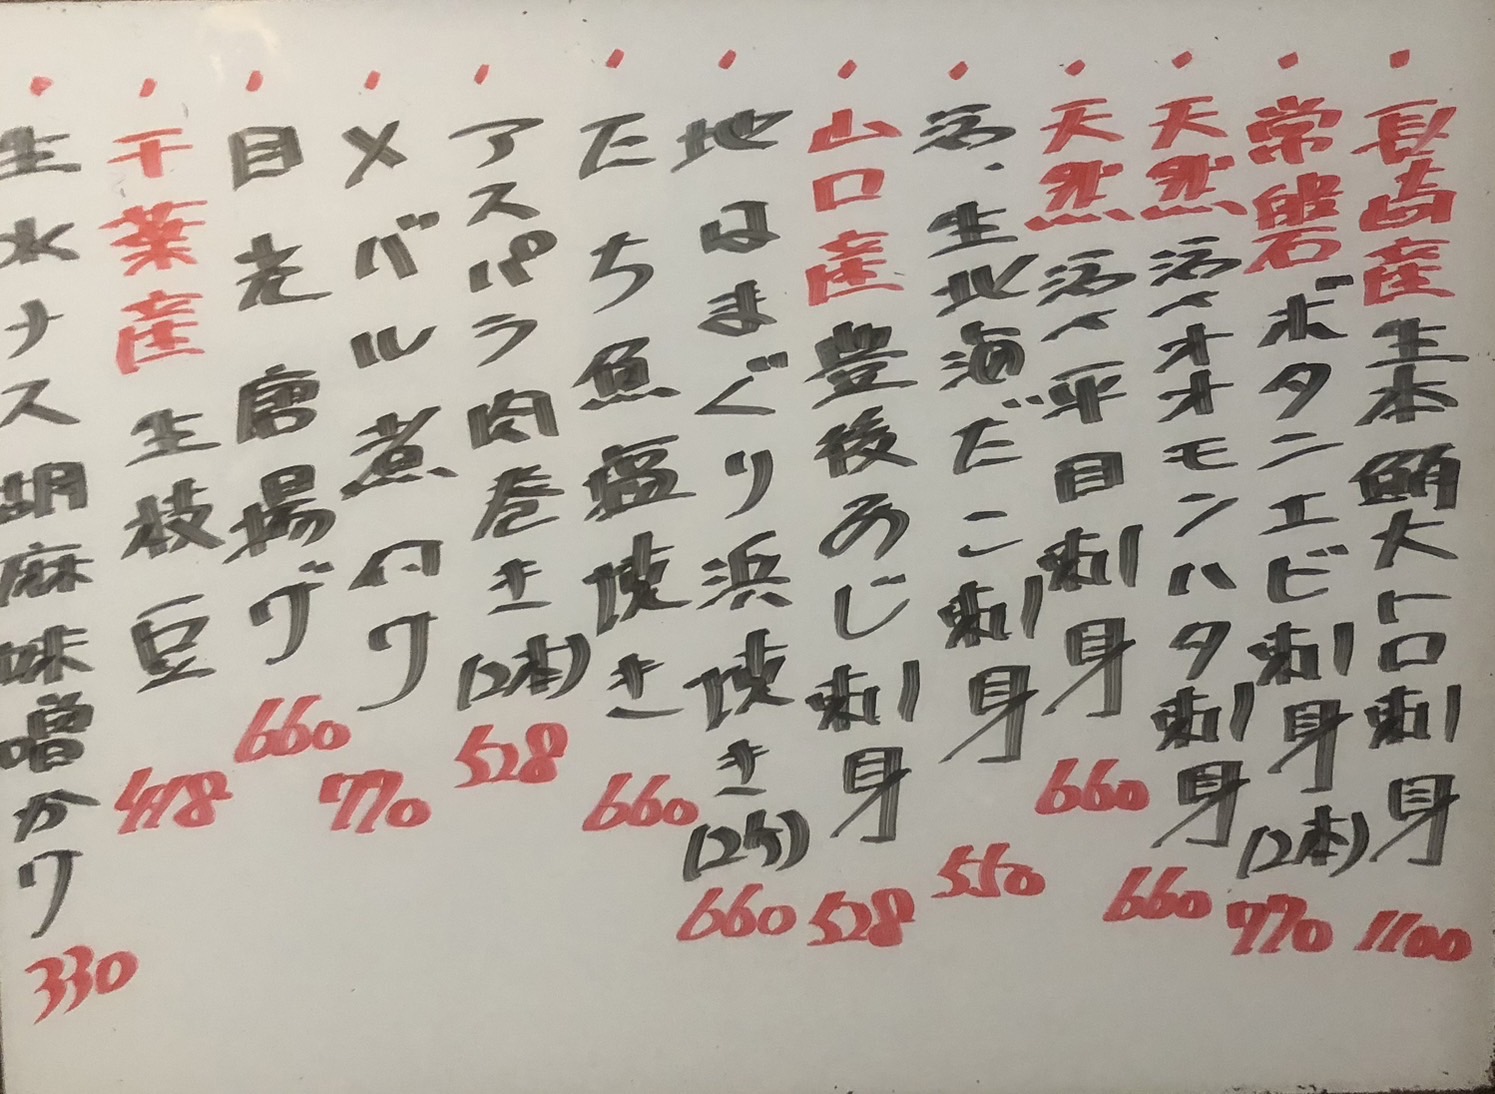 ・長崎産生本鮪大トロ刺身 1100
・常磐ボタンエビ刺身(2本) 770
・天然活〆オオモンハタ刺身 660
・天然活〆平目刺身 660
・活、生北海だこ刺身 550
・山口産豊後あじ刺身 528
・地はまぐり浜焼き(2ケ) 660
・たち魚塩焼き 660
・アスパラ肉巻き(2本) 528
・メバル煮つけ 770
・目光唐揚げ 660
・千葉産生枝豆 478
・生水ナス胡麻味噌かけ 330